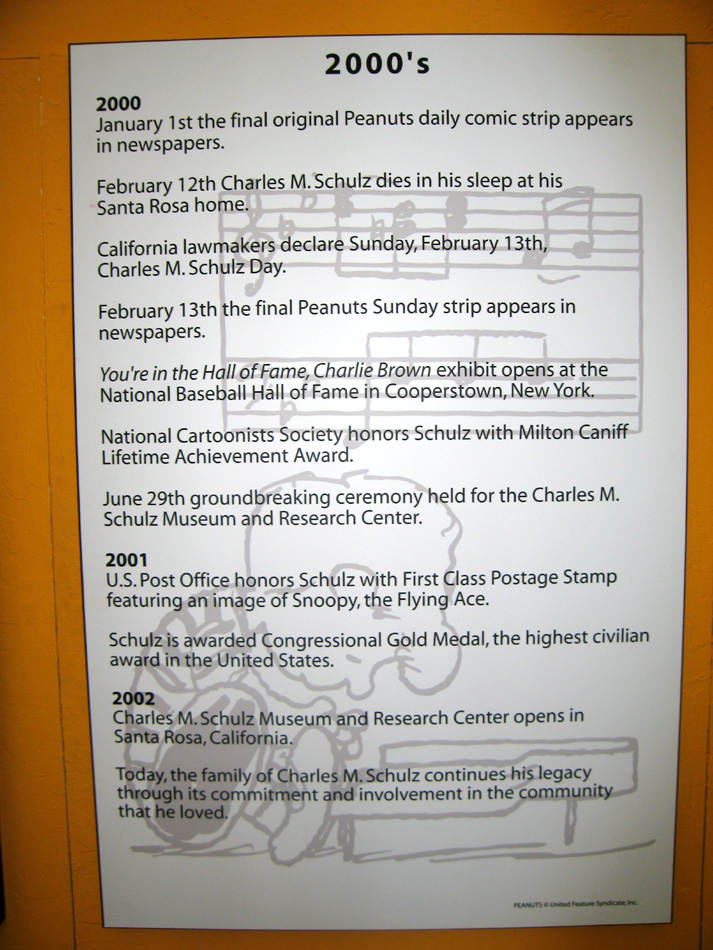 2000's
2000
January 1st the final original Peanuts daily comic strip appears
in newspapers.
February 12th Charles M. Schulz dies in his sleep at his
Santa Rosa home.
California lawmakers declare Sunday, February 13th,
Charles M. Schulz Day.
February 13th the final Peanuts Sunday strip appears in
newspapers.
You're in the Hall of Fame, Charlie Brown exhibit opens at the
National Baseball Hall of Fame in Cooperstown, New York.
National Cartoonists Society honors Schulz with Milton Caniff
Lifetime Achievement Award.
June 29th groundbreaking ceremony held for the Charles M.
Schulz Museum and Research Center.
2001
U.S. Post Office honors Schulz with First Class Postage Stamp
featuring an image of Snoopy, the Flying Ace.
Schulz is awarded Congressional Gold Medal, the highest civilian
award in the United States.
2002
Charles M. Schulz Museum and Research Center opens in
Santa Rosa, California.
Today, the family of Charles M. Schulz continues his legacy
through its commitment and involvement in the community
that he loved.
PEANUTS © United Feature Syndicate, Inc.